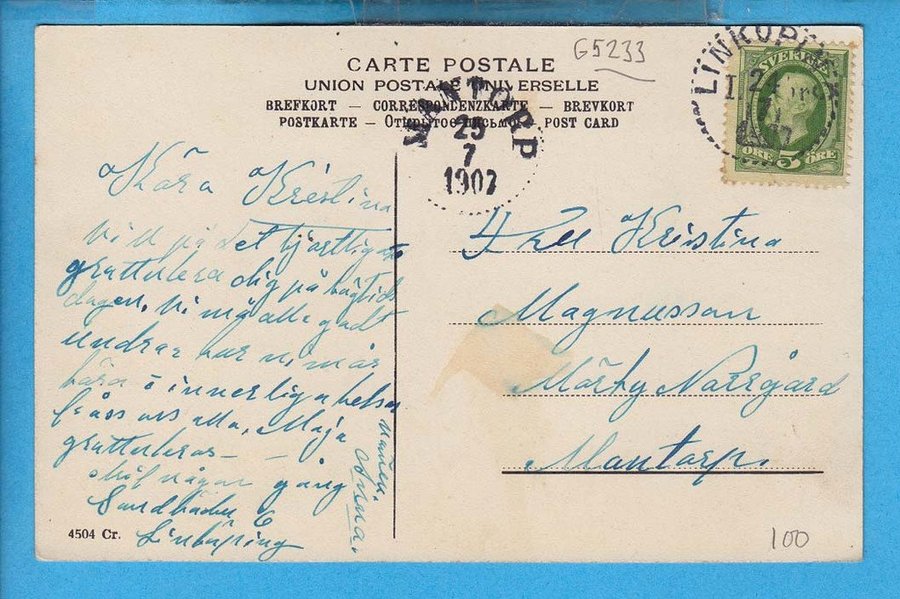 G5233
CARTE POSTALE
UNION POSTALE UNIVERSELLE
BREFKORT – CORRESPONDENZKARTE – BREVKORT
POSTKARTE – Открытое письмо – POST CARD
MANTORP
25
7
1907
LINKÖPING
SVERIGE
1907
ÖRE 5 ÖRE
Kära Kristina
vill på det hjärtligaste
grattulera dig på
dagen, vi må alla godt
undrar hur ni mår
kära o innerliga helsn
från oss alla, Maja
grattuleras –
skrif någon gång
Sandbäcken 6
Linköping
Anna.
Kristina
Magnusson
Mörby Norrgård
Mantorp.
4504 Cr.
100